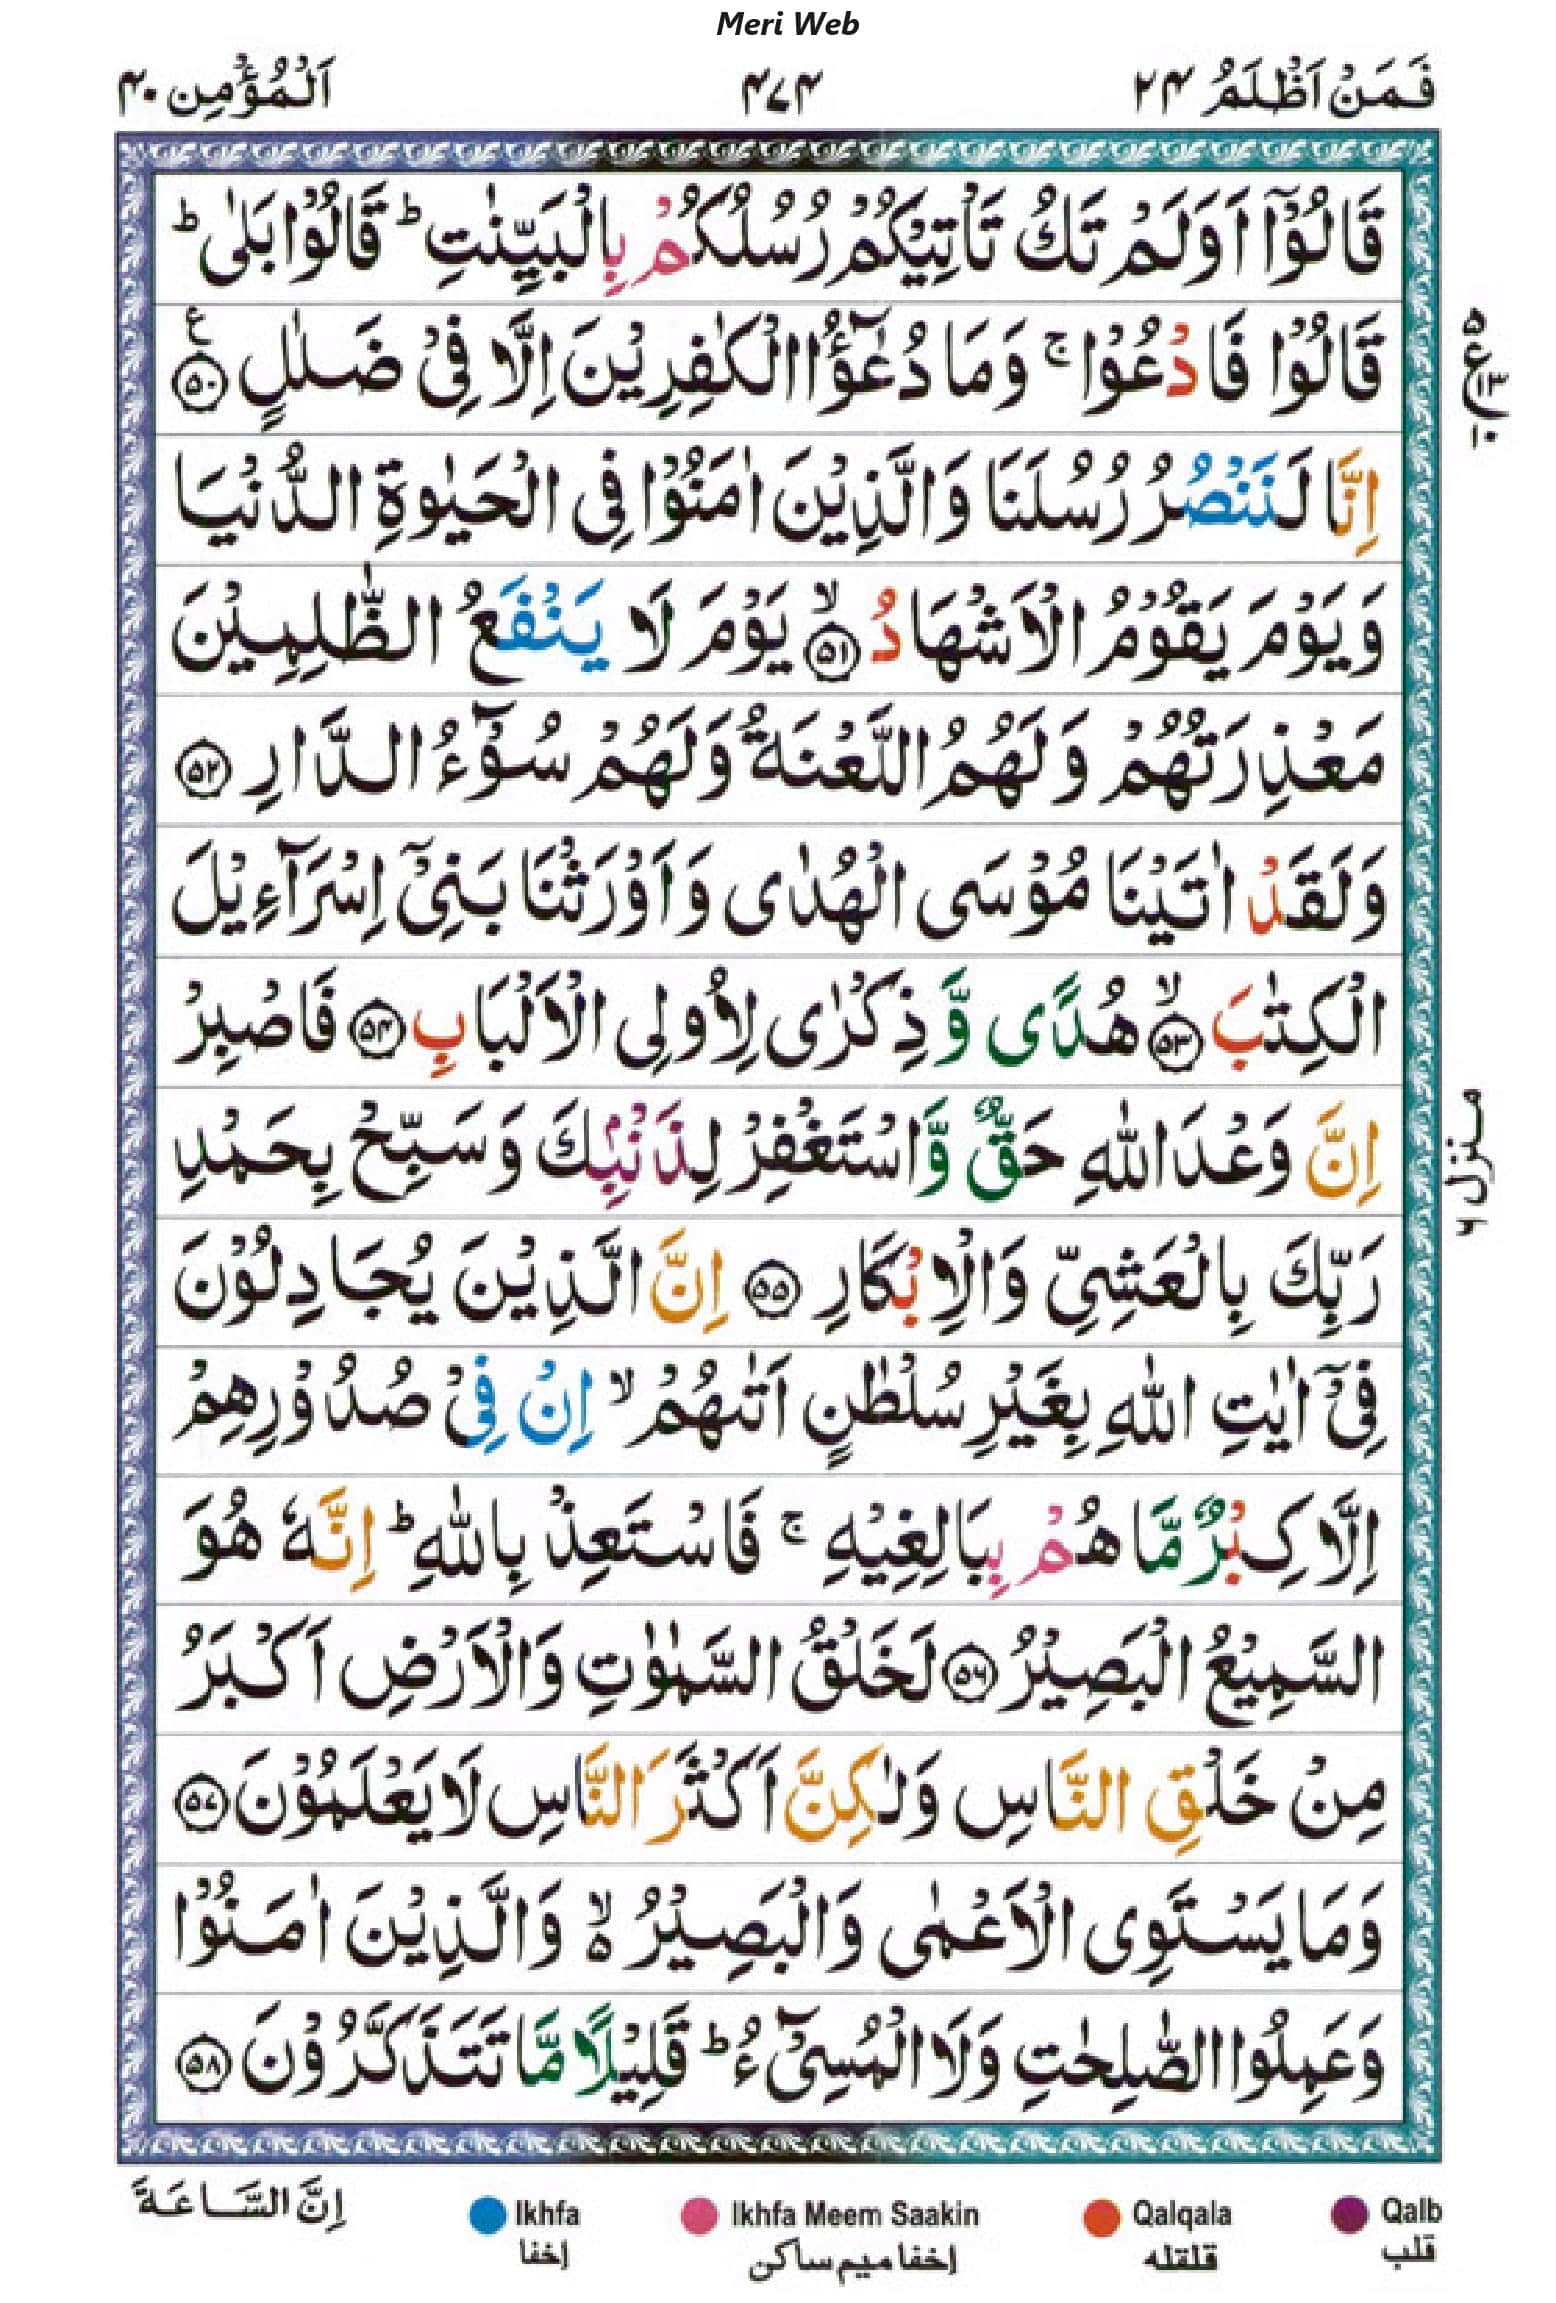 Meri Web
فَمَنْ اَظْلَمُ ۲۴
۴۷۴
اَلْمُؤْمِن ۴۰
قَالُوْۤا اَوَلَمْ تَكُ تَاْتِيْكُمْ رُسُلُكُمْ بِالْبَيِّنٰتِ ؕ قَالُوْا بَلٰى ؕ
قَالُوْا فَادْعُوْا ۚ وَمَا دُعٰٓؤُا الْكٰفِرِيْنَ اِلَّا فِیْ ضَلٰلٍ ۵۰ ع
اِنَّا لَنَنْصُرُ رُسُلَنَا وَالَّذِيْنَ اٰمَنُوْا فِی الْحَيٰوةِ الدُّنْيَا
وَيَوْمَ يَقُوْمُ الْاَشْهَادُ ۙ ۵۱ يَوْمَ لَا يَنْفَعُ الظّٰلِمِيْنَ
مَعْذِرَتُهُمْ وَلَهُمُ اللَّعْنَةُ وَلَهُمْ سُوْٓءُ الدَّارِ ۵۲
وَلَقَدْ اٰتَيْنَا مُوْسَى الْهُدٰى وَاَوْرَثْنَا بَنِیْۤ اِسْرَآءِيْلَ
الْكِتٰبَ ۙ ۵۳ هُدًى وَّ ذِكْرٰى لِاُولِی الْاَلْبَابِ ۵۴ فَاصْبِرْ
اِنَّ وَعْدَ اللّٰهِ حَقٌّ وَّاسْتَغْفِرْ لِذَنْۢبِكَ وَسَبِّحْ بِحَمْدِ
رَبِّكَ بِالْعَشِیِّ وَالْاِبْكَارِ ۵۵ اِنَّ الَّذِيْنَ يُجَادِلُوْنَ
فِیْۤ اٰيٰتِ اللّٰهِ بِغَيْرِ سُلْطٰنٍ اَتٰىهُمْ ۙ اِنْ فِیْ صُدُوْرِهِمْ
اِلَّا كِبْرٌ مَّا هُمْ بِبَالِغِيْهِ ۚ فَاسْتَعِذْ بِاللّٰهِ ؕ اِنَّهٗ هُوَ
السَّمِيْعُ الْبَصِيْرُ ۵۶ لَخَلْقُ السَّمٰوٰتِ وَالْاَرْضِ اَكْبَرُ
مِنْ خَلْقِ النَّاسِ وَلٰكِنَّ اَكْثَرَ النَّاسِ لَا يَعْلَمُوْنَ ۵۷
وَمَا يَسْتَوِی الْاَعْمٰى وَالْبَصِيْرُ ۙ۬ وَالَّذِيْنَ اٰمَنُوْا
وَعَمِلُوا الصّٰلِحٰتِ وَلَا الْمُسِیْٓءُ ؕ قَلِيْلًا مَّا تَتَذَكَّرُوْنَ ۵۸
۵
ع
۱۳
۱۰
منزل ۶
اِنَّ السَّاعَةَ
Ikhfa
إخفا
Ikhfa Meem Saakin
إخفا میم ساکن
Qalqala
قلقله
Qalb
قلب